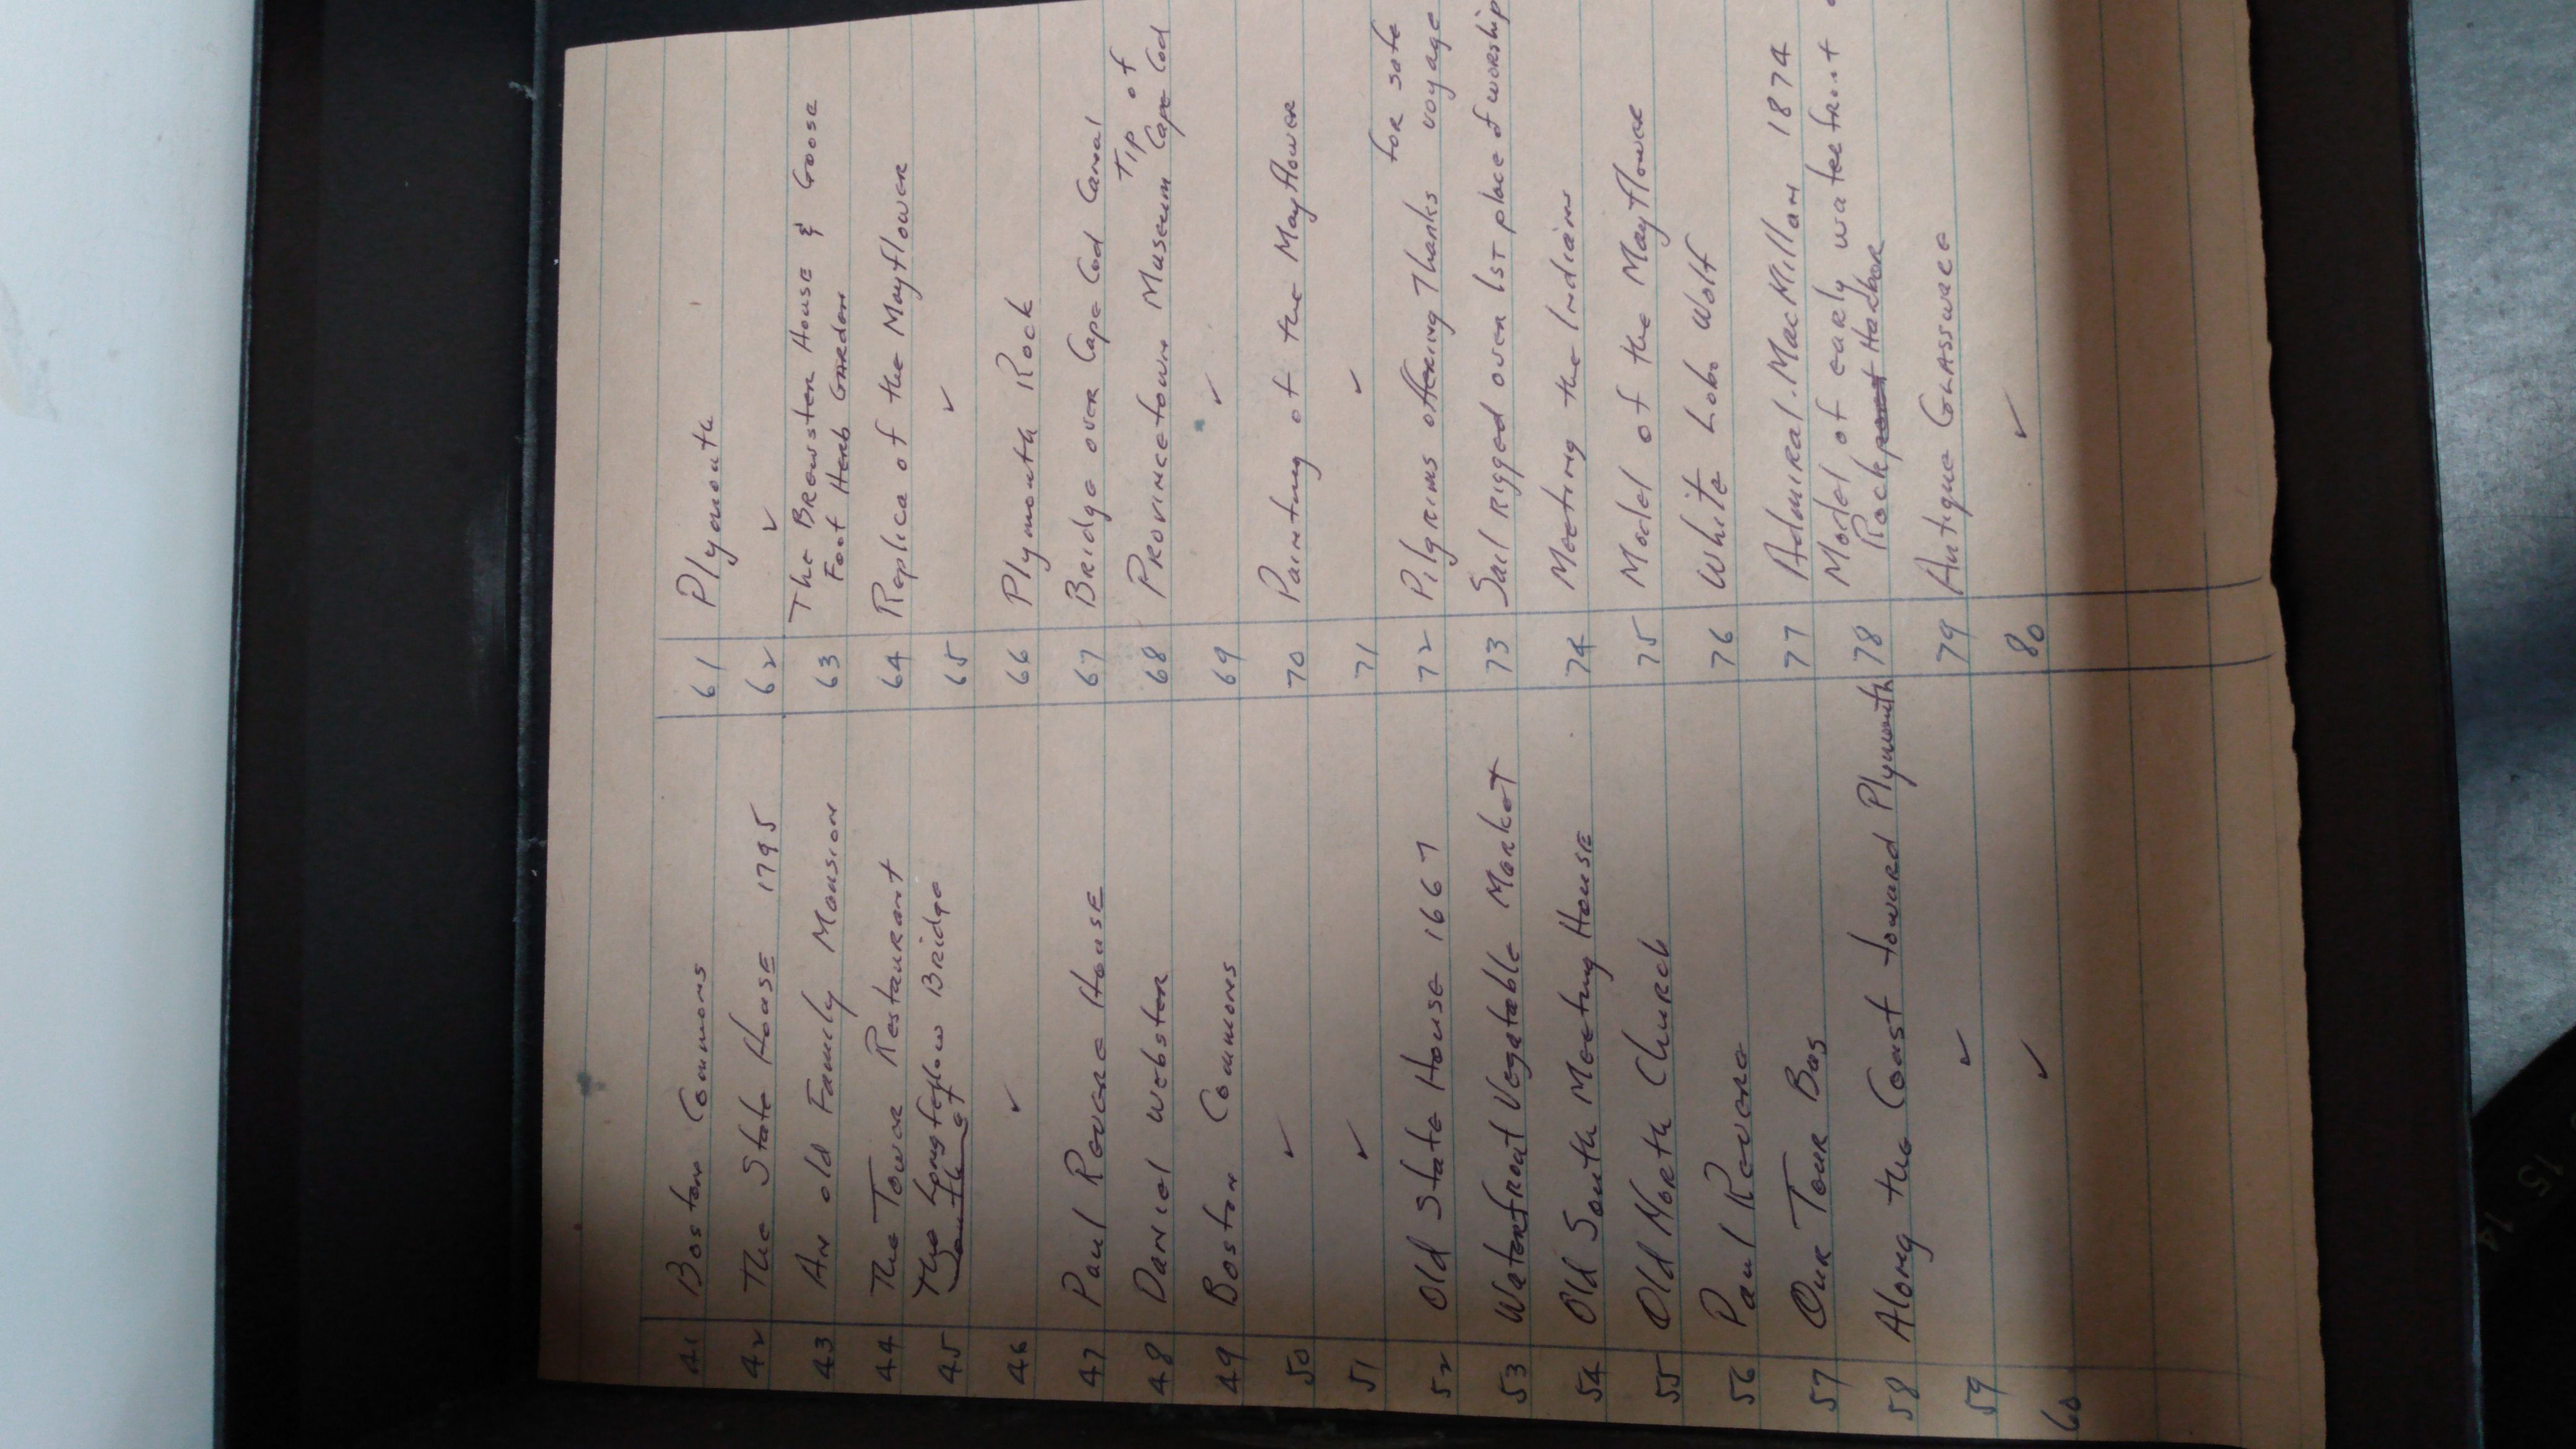 41 Boston Commons
42 The State House 1795
43 An old Family Mansion
44 The Tower Restaurant
45 The Longfellow Bridge
46 ✓
47 Paul Revere House
48 Daniel Webster
49 Boston Commons
50 ✓
51 ✓
52 Old State House 1667
53 Waterfront Vegatable Market
54 Old South Meeting House
55 Old North Church
56 Paul Revere
57 Our Tour Bus
58 Along the Coast toward Plymouth
59 ✓
60 ✓
61 Plymouth
62 ✓
63 The Brewster House & Goose
Foot Herb Garden
64 Replica of the Mayflower
65 ✓
66 Plymouth Rock
67 Bridge over Cape Cod Canal
Tip of
68 Provincetown Museum Cape Cod
69 ✓
70 Painting of the Mayflower
71 ✓
for safe
72 Pilgrims offering Thanks voyage
73 Sail rigged over 1st place of worship
74 Meeting the Indians
75 Model of the Mayflower
76 White Lobo Wolf
77 Admiral MacMillan 1874
78 Model of early waterfront
Rockport Harbor
79 Antique Glassware
80 ✓
15 14